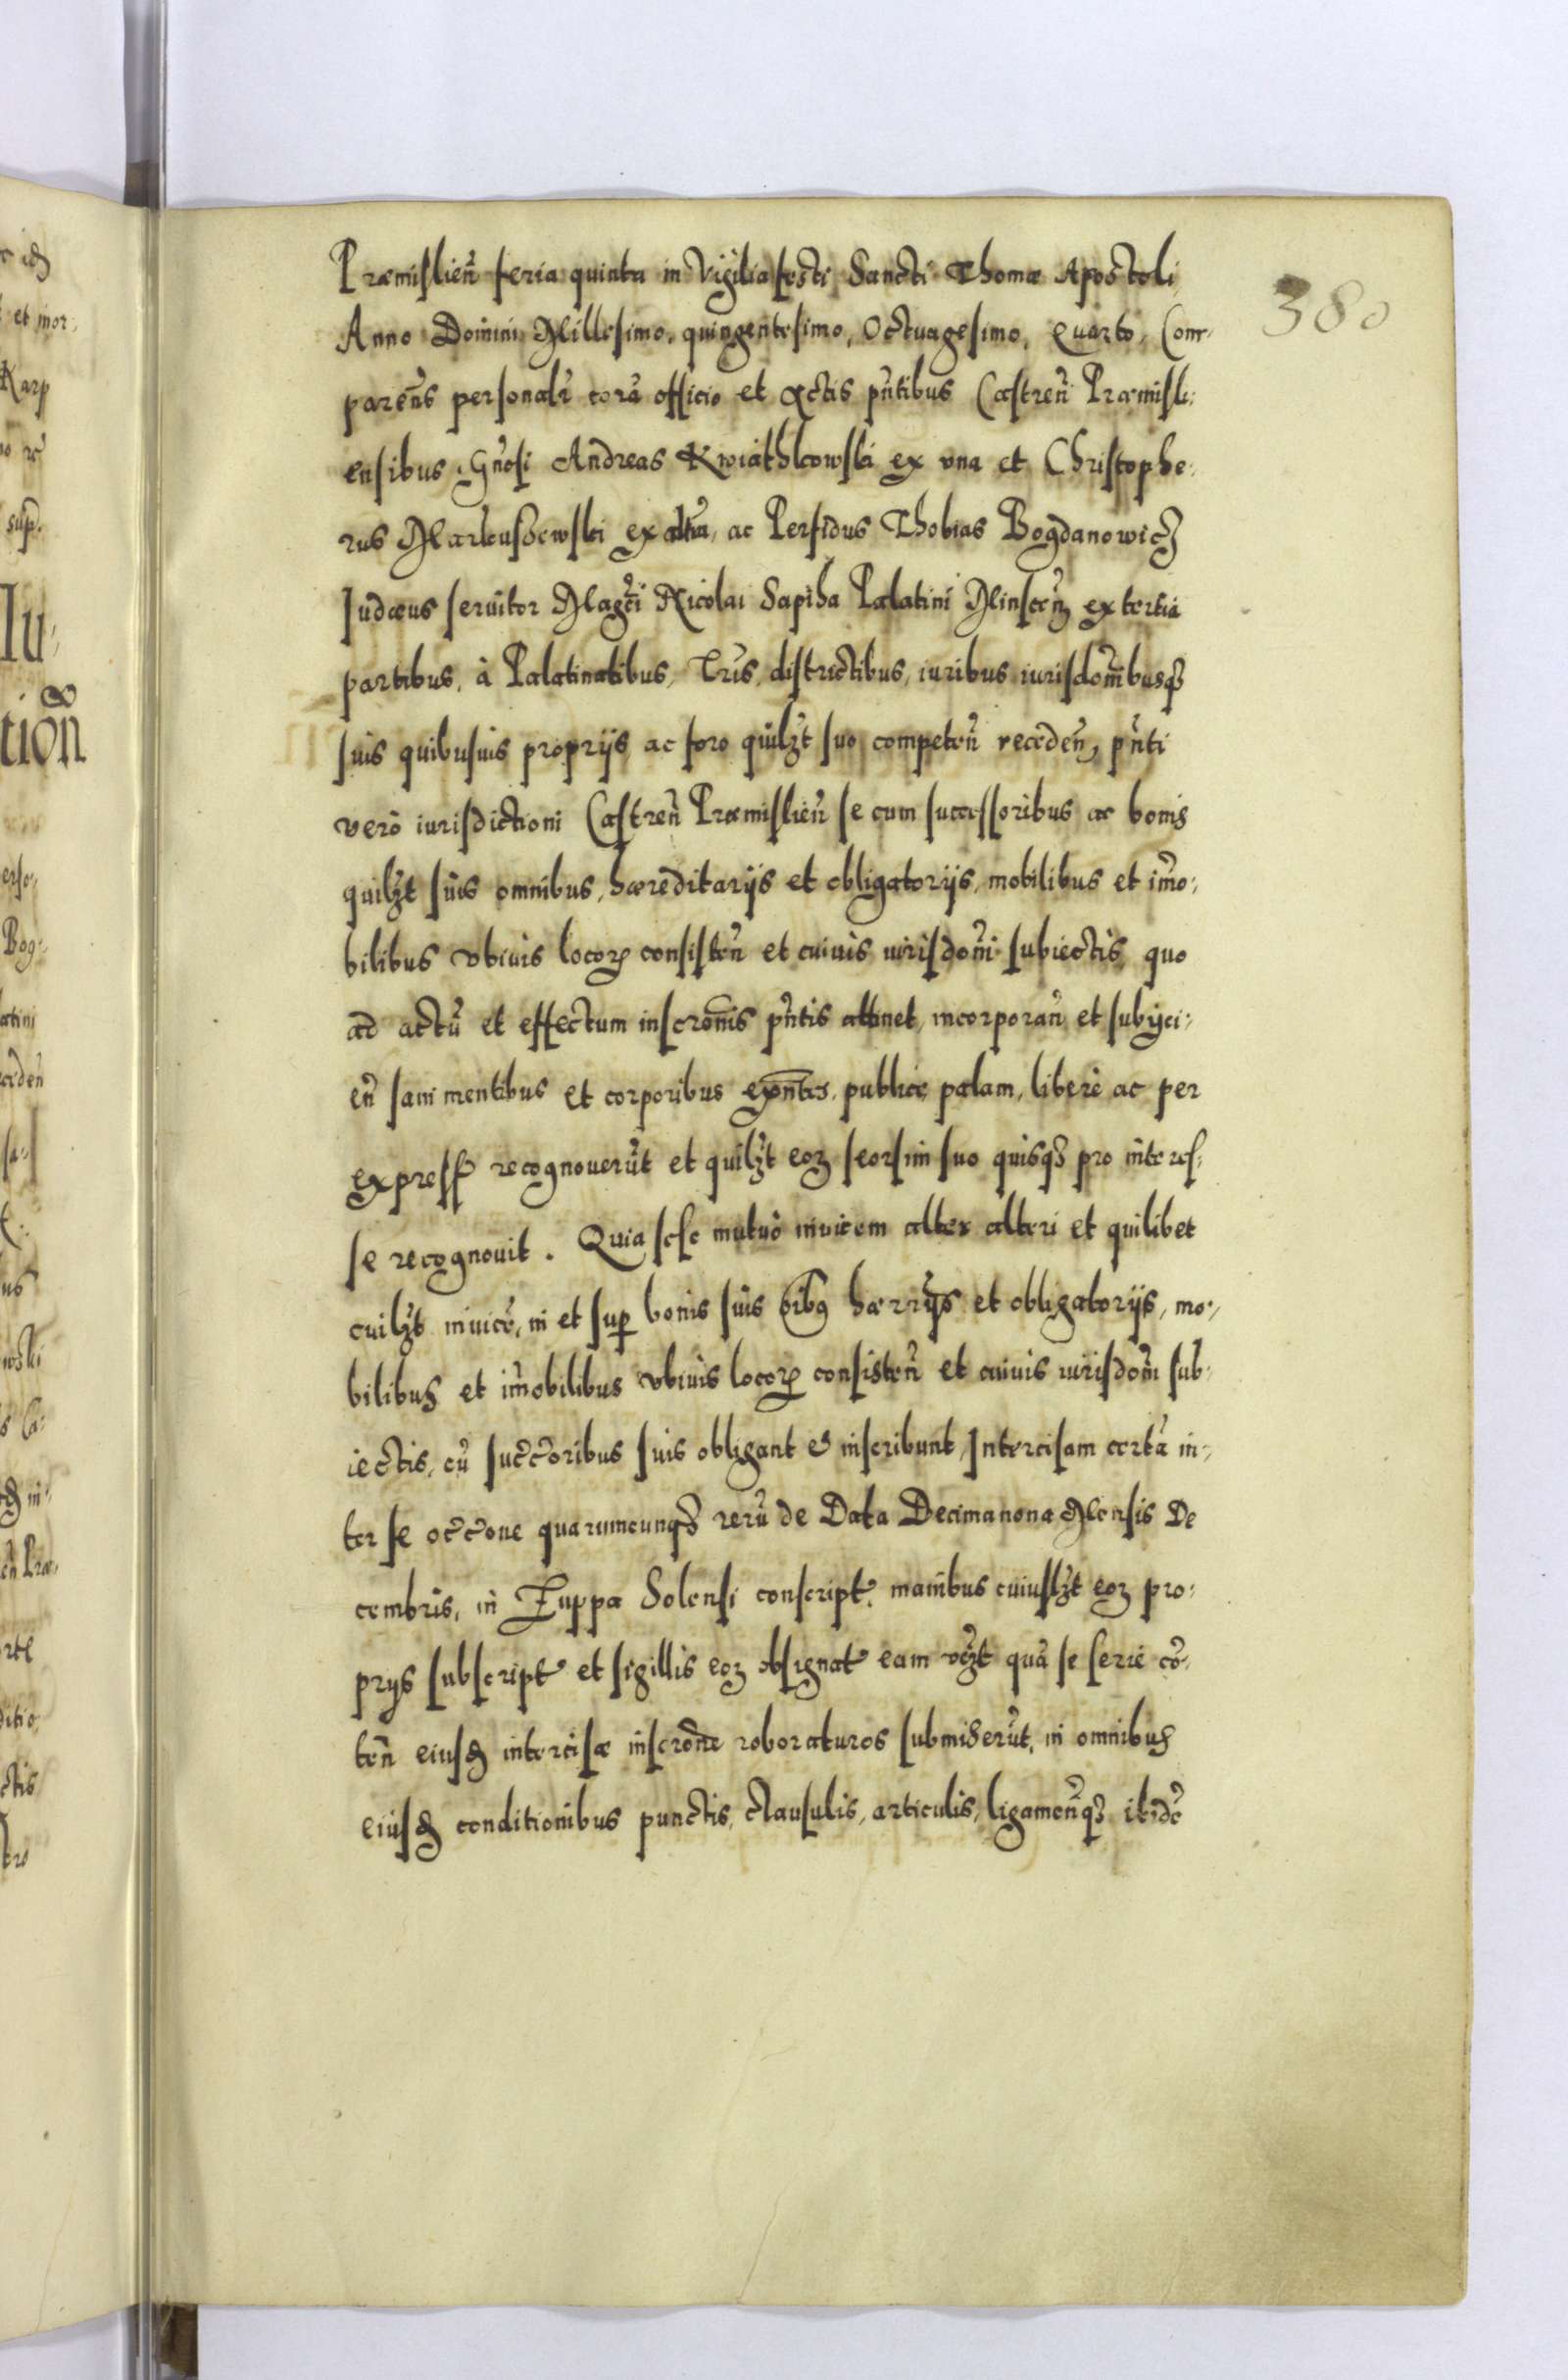 380
Præmislien̄ feria quinta in Vigilia festi Sancti Thomæ Apostoli
Anno Domini Millesimo, quingentesimo, Octuagesimo, Quarto, Com-
parēns personalr̄ corā officio et Actis pn̄tibus Castren̄ Præmisli-
ensibus, Gn̄osi Andreas Kwiathkowski ex vna et Christophe-
rus Markuszewski ex altera, ac Perfidus Thobias Bogdanowicz
Judæus seruitor Magci Nicolai Sapiha Palatini Minscen̄ ex tertia
partibus, à Palatinatibus, Tr̄is, districtibus, iuribus iurisdom̄busq3
suis quibusuis proprijs ac foro quilzt suo competen̄ recēden̄, pn̄ti
verò iurisdictioni Castren̄ Præmislien̄ se cum successoribus ac bonis
quilzt suis omnibus, hæreditarijs et obligatorijs, mobilibus et im̄o-
bilibus vbiuis locorꝝ consisten̄ et cuiuis iurisdom̄i subiectis, quo
ad actū et effectum inscrōnis pn̄tis attinet, incorporan̄ et subijci-
en̄ sani mentibus et corporibus exn̄tes, publicè palam, liberè ac per
express̄ recognouerūt et quilzt eoꝝ seorsim suo quisq3 pro interes-
se recognouit. Quia sese mutuò inuicem alter alteri et quilibet
cuilzt inuicē, in et suꝑ bonis suis oībꝰ hærrijs et obligatorijs, mo-
bilibus et im̄obilibus vbiuis locorꝝ consisten̄ et cuiuis iurisdom̄i sub-
iectis, cū succ̄oribus suis obligant et inscribunt, Intercisam certā in-
ter se occ̄one quarumcunq3 rerū de Data Decimanona Mensis De
cembris, in Zuppa Solensi conscript, manibus cuiuslzt eoꝝ pro-
prijs subscript et sigillis eoꝝ obsignat eam vzt quā se serie cō-
ten̄ eiusd intercisæ inscrōne roboraturos submiserūt, in omnibus
eiusd conditionibus punctis, clausulis, articulis, ligamen̄q3 ibidē